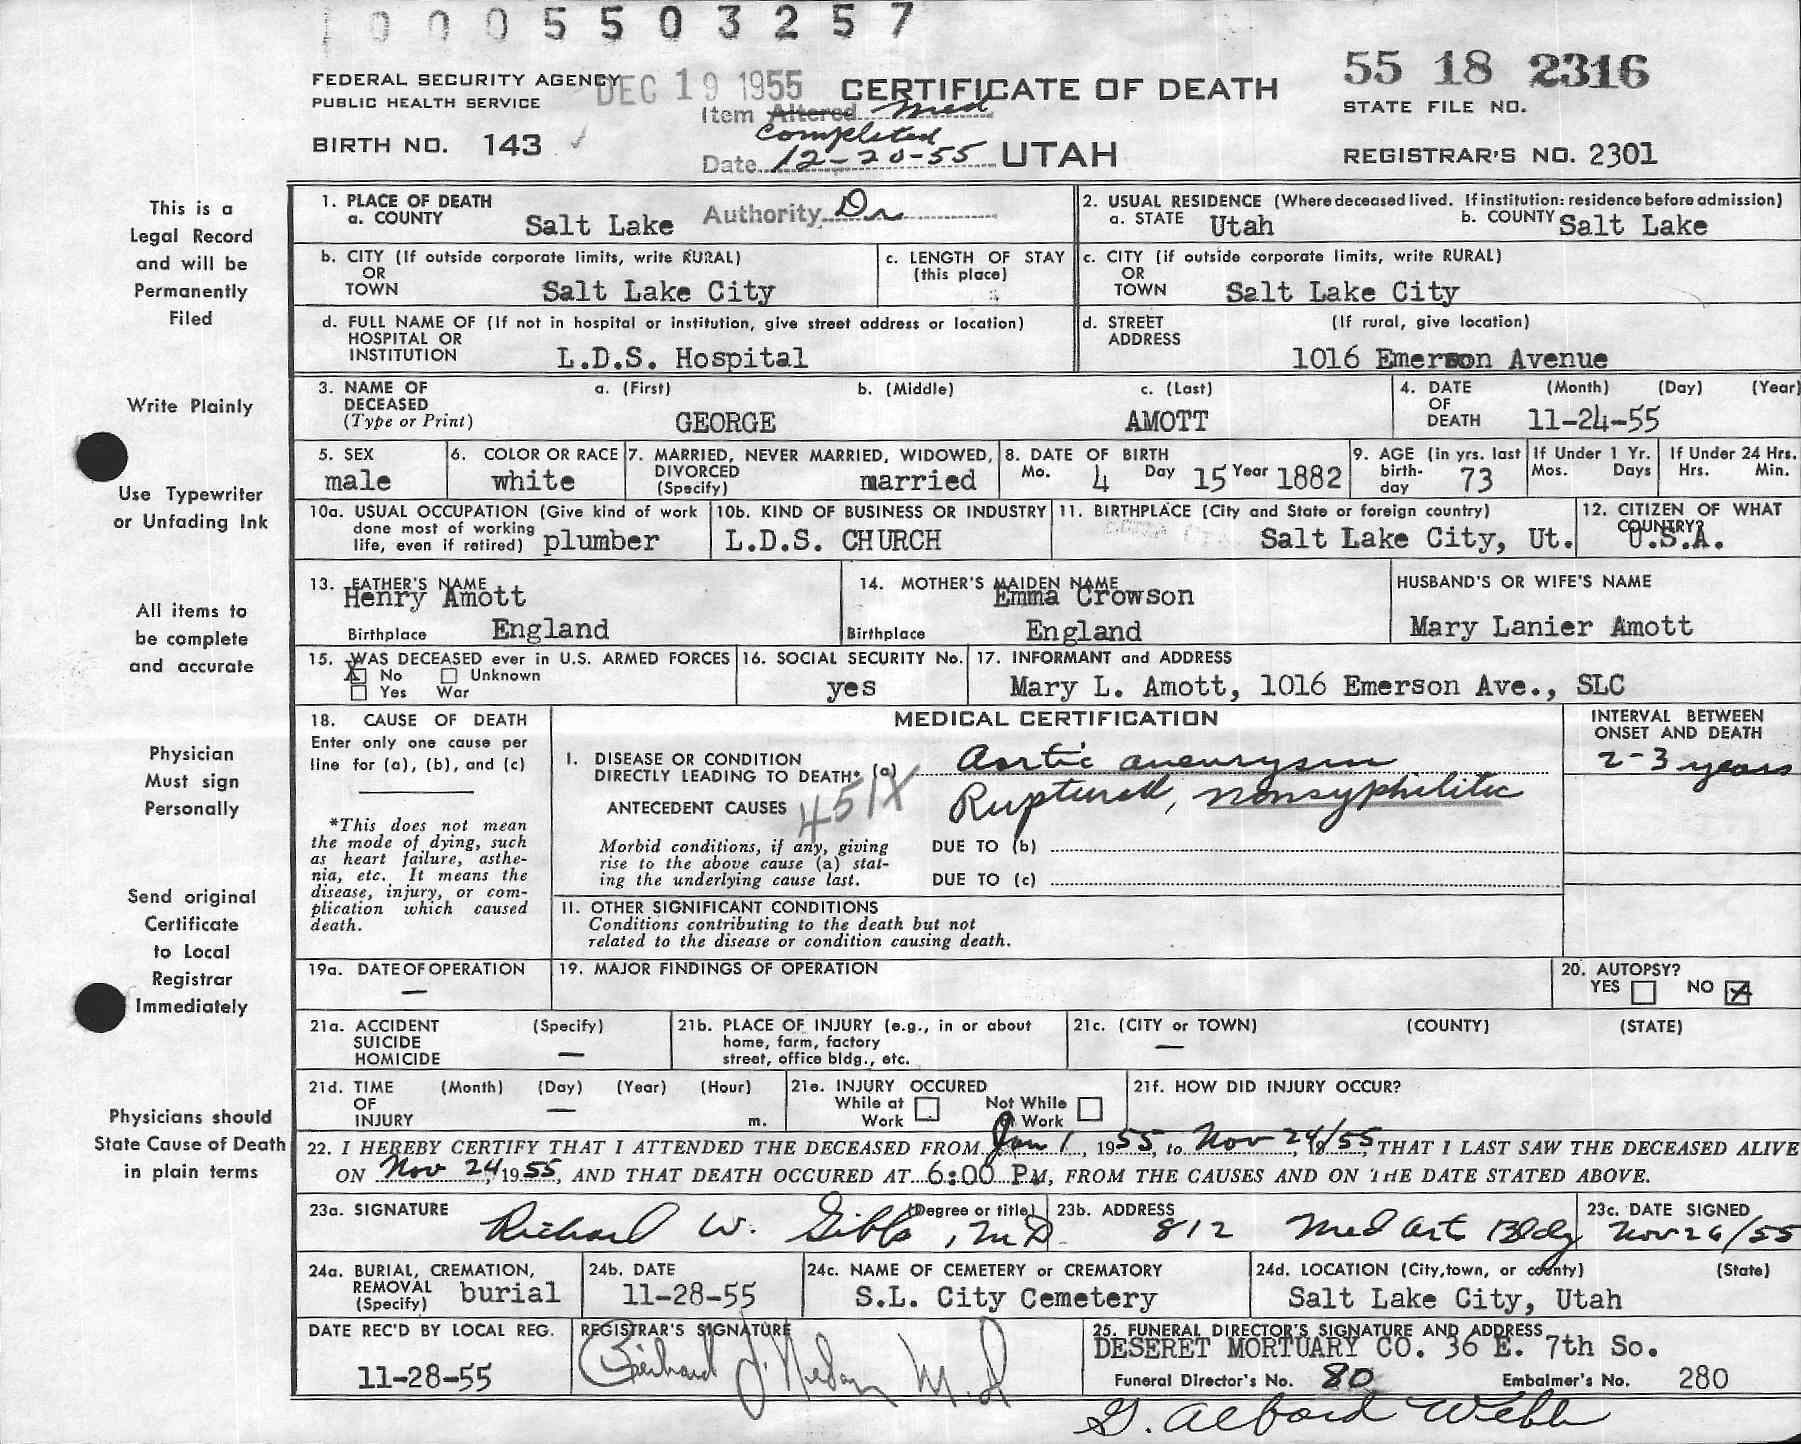 10005503257
FEDERAL SECURITY AGENCY
PUBLIC HEALTH SERVICE
DEC 19 1955
CERTIFICATE OF DEATH
55 18 2316
STATE FILE NO.
Item Altered Med
completed
BIRTH NO. 143
Date 12-20-55
UTAH
REGISTRAR'S NO. 2301
This is a
Legal Record
and will be
Permanently
Filed
Write Plainly
Use Typewriter
or Unfading Ink
All items to
be complete
and accurate
Physician
Must sign
Personally
Send original
Certificate
to Local
Registrar
Immediately
Physicians should
State Cause of Death
in plain terms
1. PLACE OF DEATH
a. COUNTY Salt Lake
Authority Dr
2. USUAL RESIDENCE (Where deceased lived. If institution: residence before admission)
a. STATE Utah b. COUNTY Salt Lake
b. CITY (If outside corporate limits, write RURAL)
OR
TOWN Salt Lake City
c. LENGTH OF STAY
(this place)
c. CITY (if outside corporate limits, write RURAL)
OR
TOWN Salt Lake City
d. FULL NAME OF (If not in hospital or institution, give street address or location)
HOSPITAL OR
INSTITUTION L.D.S. Hospital
d. STREET (If rural, give location)
ADDRESS
1016 Emerson Avenue
3. NAME OF a. (First) b. (Middle) c. (Last)
DECEASED
(Type or Print) GEORGE AMOTT
4. DATE (Month) (Day) (Year)
OF
DEATH 11-24-55
5. SEX
male
6. COLOR OR RACE
white
7. MARRIED, NEVER MARRIED, WIDOWED,
DIVORCED
(Specify) married
8. DATE OF BIRTH
Mo. 4 Day 15 Year 1882
9. AGE (in yrs. last
birth-
day 73
If Under 1 Yr.
Mos. Days
If Under 24 Hrs.
Hrs. Min.
10a. USUAL OCCUPATION (Give kind of work
done most of working
life, even if retired) plumber
10b. KIND OF BUSINESS OR INDUSTRY
L.D.S. CHURCH
11. BIRTHPLACE (City and State or foreign country)
Salt Lake City, Ut.
12. CITIZEN OF WHAT
COUNTRY?
U.S.A.
13. FATHER'S NAME
Henry Amott
Birthplace England
14. MOTHER'S MAIDEN NAME
Emma Crowson
Birthplace England
HUSBAND'S OR WIFE'S NAME
Mary Lanier Amott
15. WAS DECEASED ever in U.S. ARMED FORCES
X No Unknown
Yes War
16. SOCIAL SECURITY No.
yes
17. INFORMANT and ADDRESS
Mary L. Amott, 1016 Emerson Ave., SLC
18. CAUSE OF DEATH
Enter only one cause per
line for (a), (b), and (c)
*This does not mean
the mode of dying, such
as heart failure, asthe-
nia, etc. It means the
disease, injury, or com-
plication which caused
death.
MEDICAL CERTIFICATION
INTERVAL BETWEEN
ONSET AND DEATH
I. DISEASE OR CONDITION
DIRECTLY LEADING TO DEATH* (a) Aortic aneurysm
2-3 years
ANTECEDENT CAUSES 451X Ruptured, nonsyphilitic
Morbid conditions, if any, giving
rise to the above cause (a) stat-
ing the underlying cause last.
DUE TO (b)
DUE TO (c)
II. OTHER SIGNIFICANT CONDITIONS
Conditions contributing to the death but not
related to the disease or condition causing death.
19a. DATE OF OPERATION
—
19. MAJOR FINDINGS OF OPERATION
20. AUTOPSY?
YES NO X
21a. ACCIDENT (Specify)
SUICIDE
HOMICIDE —
21b. PLACE OF INJURY (e.g., in or about
home, farm, factory
street, office bldg., etc.
21c. (CITY or TOWN) (COUNTY) (STATE)
—
21d. TIME (Month) (Day) (Year) (Hour)
OF —
INJURY m.
21e. INJURY OCCURED
While at Not While
Work at Work
21f. HOW DID INJURY OCCUR?
22. I HEREBY CERTIFY THAT I ATTENDED THE DECEASED FROM Jan 1, 1955, to Nov 24/55, THAT I LAST SAW THE DECEASED ALIVE
ON Nov 24, 1955, AND THAT DEATH OCCURED AT 6:00 P.M, FROM THE CAUSES AND ON THE DATE STATED ABOVE.
23a. SIGNATURE (Degree or title)
Richard W. Gibbs, M.D.
23b. ADDRESS
812 Med Art Bldg
23c. DATE SIGNED
Nov 26/55
24a. BURIAL, CREMATION,
REMOVAL
(Specify) burial
24b. DATE
11-28-55
24c. NAME OF CEMETERY or CREMATORY
S.L. City Cemetery
24d. LOCATION (City, town, or county) (State)
Salt Lake City, Utah
DATE REC'D BY LOCAL REG.
11-28-55
REGISTRAR'S SIGNATURE
M.D
25. FUNERAL DIRECTOR'S SIGNATURE AND ADDRESS
DESERET MORTUARY CO. 36 E. 7th So.
Funeral Director's No. 80 Embalmer's No. 280
G. Alboard Webb